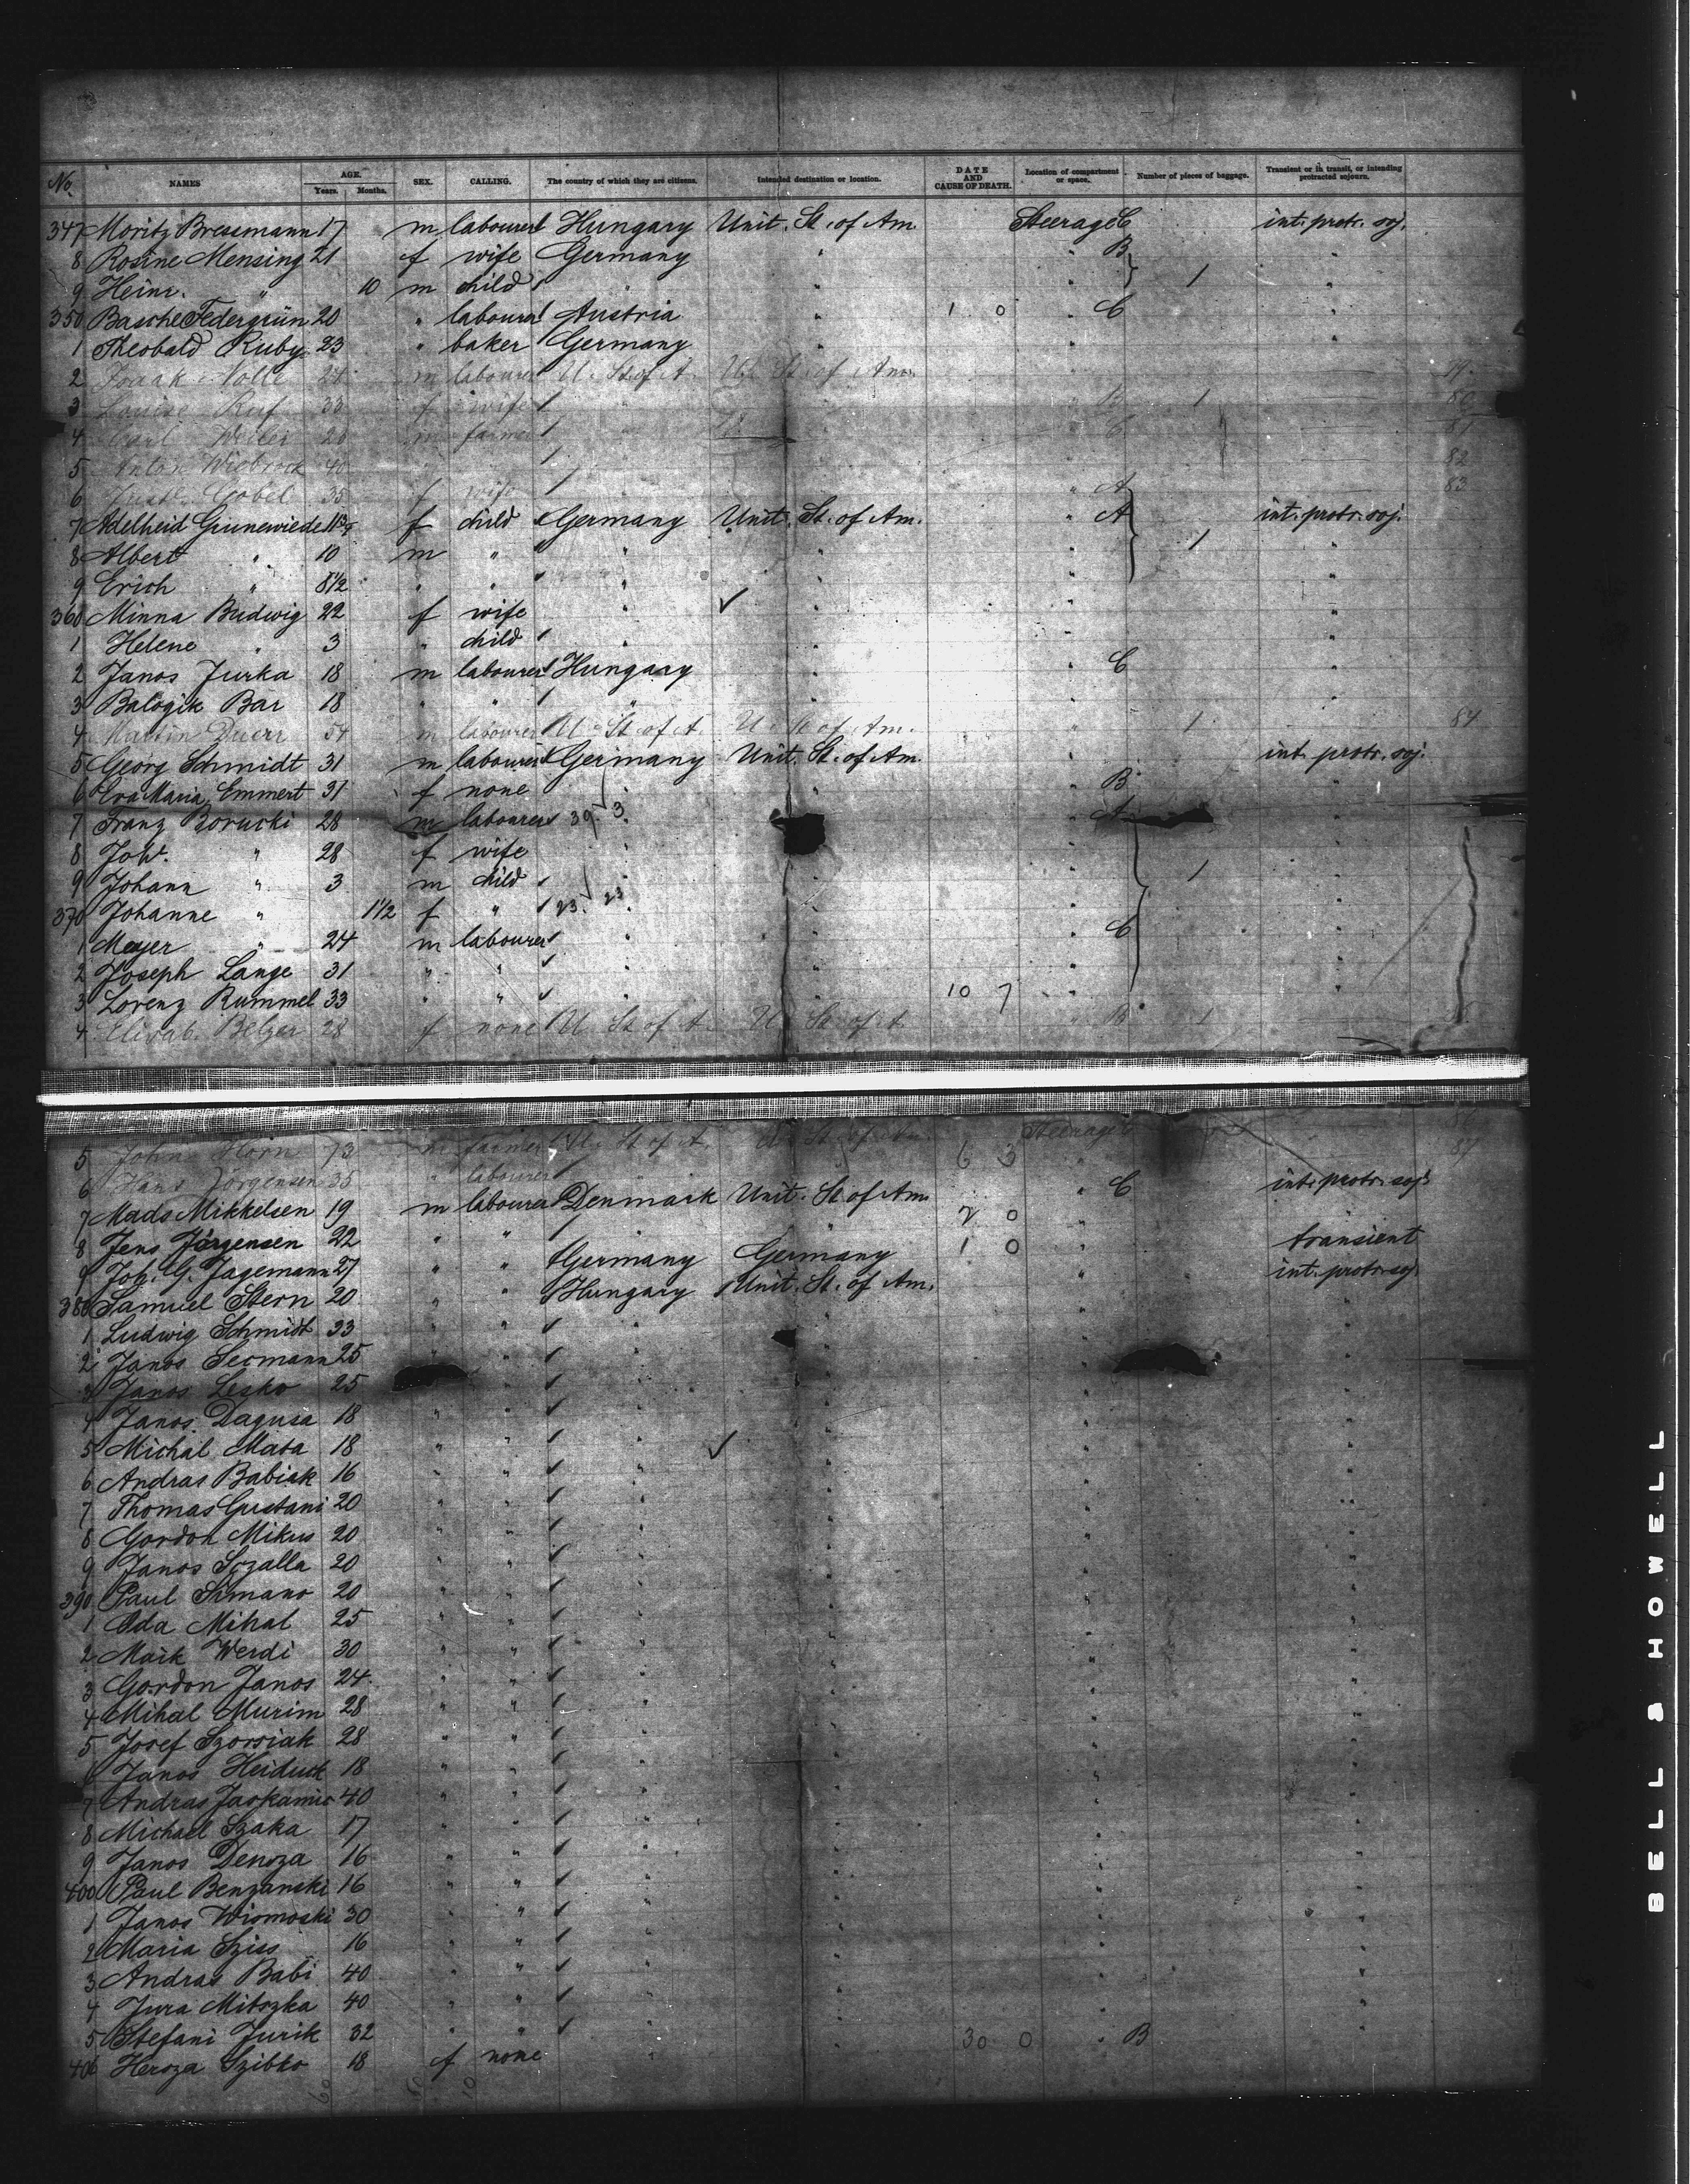 No. NAMES AGE. Years. Months. SEX. CALLING. The country of which they are citizens. Intended destination or location. DATE AND CAUSE OF DEATH. Location of compartment or space. Number of pieces of baggage. Transient or in transit, or intending protracted sojourn.
347 Moritz Bressmann 17 m labourer Hungary Unit. St. of Am. Steerage C int. protr. soj.
8 Rosine Mensing 21 f wife Germany " " B "
9 Heinr. " 10 m child " " " 1 "
350 Basche Federgrün 20 " labourer Austria " 1 0 " C "
1 Theobald Ruby 23 " baker Germany " " "
2 Nolle 24 m labourer U. St. of A. U. St. of Am. 79
3 Louise Ruf 33 f wife " " B 1 80
4 Carl Weiler 20 m farmer " C 81
5 Anton Wiebrock 40 " 82
6 Göbel 35 f wife " " A 83
7 Adelheid Grunewiede f child Germany Unit. St. of Am. " A int. protr. soj.
8 Albert " 10 m " " " " 1 "
9 Erich " 8 1/2 " " " " " "
360 Minna Budwig 22 f wife " " " "
1 Helene " 3 " child " " " "
2 Janos Jurka 18 m labourer Hungary " " C "
3 Balogik Bar 18 " " " " " "
4 Martin Duerr 54 m labourer U. St. of A. U. St. of Am. " 1 84
5 Georg Schmidt 31 m labourer Germany Unit. St. of Am. " int. protr. soj.
6 Eva Maria Emmert 31 f none " " " B "
7 Franz Borucki 28 m labourer 39 3 " A "
8 Joh. " 28 f wife " " " "
9 Johann " 3 m child " " " 1 "
370 Johanne " 1 1/2 f " 23 23 " " "
1 Meyer " 24 m labourer " " " C "
2 Joseph Lange 31 " " " " " "
3 Lorenz Rummel 33 " " " " 10 7 " "
4 Elisab. Belzer 28 f none U. St. of A. U. St. of A. " B 1
86
5 John Horn 73 m farmer U. St. of A. U. St. of Am. Steerage 87
6 Hans Jörgensen 35 " labourer " " 6 3 "
7 Mads Mikkelsen 19 m labourer Denmark Unit. St. of Am. " C int. protr. soj.
8 Jens Jörgensen 22 " " " " 2 0 " "
9 Joh. G. Jagemann 27 " " Germany Germany 1 0 " transient
380 Samuel Stern 20 " " Hungary Unit. St. of Am. " int. protr. soj.
1 Ludwig Schmidt 23 " " " " " "
2 Janos Secmann 25 " " " " "
3 Janos Lesko 25 " " " " "
4 Janos Dagusa 18 " " " " " "
5 Michal Mata 18 " " " " " "
6 Andras Babiak 16 " " " " " "
7 Thomas Gustani 20 " " " " " "
8 Gordon Mikus 20 " " " " " "
9 Janos Sczalla 20 " " " " " "
390 Paul Simano 20 " " " " " "
1 Oda Mihal 25 " " " " " "
2 Maik Werdi 30 " " " " " "
3 Gordon Janos 24 " " " " " "
4 Mihal Murim 28 " " " " " "
5 Josef Szorsiak 28 " " " " " "
6 Janos Heiduck 18 " " " " " "
7 Andras Jaskamic 40 " " " " " "
8 Michael Szaka 17 " " " " " "
9 Janos Denoza 16 " " " " " "
400 Paul Benzanski 16 " " " " " "
1 Janos Wiomoski 30 " " " " " "
2 Maria Sziss 16 " " " " " "
3 Andras Babi 40 " " " " " "
4 Jura Mitszka 40 " " " " " "
5 Stefani Jurik 32 " " " " " "
406 Heroza Szibko 18 f none " " 30 0 " B "
BELL & HOWELL